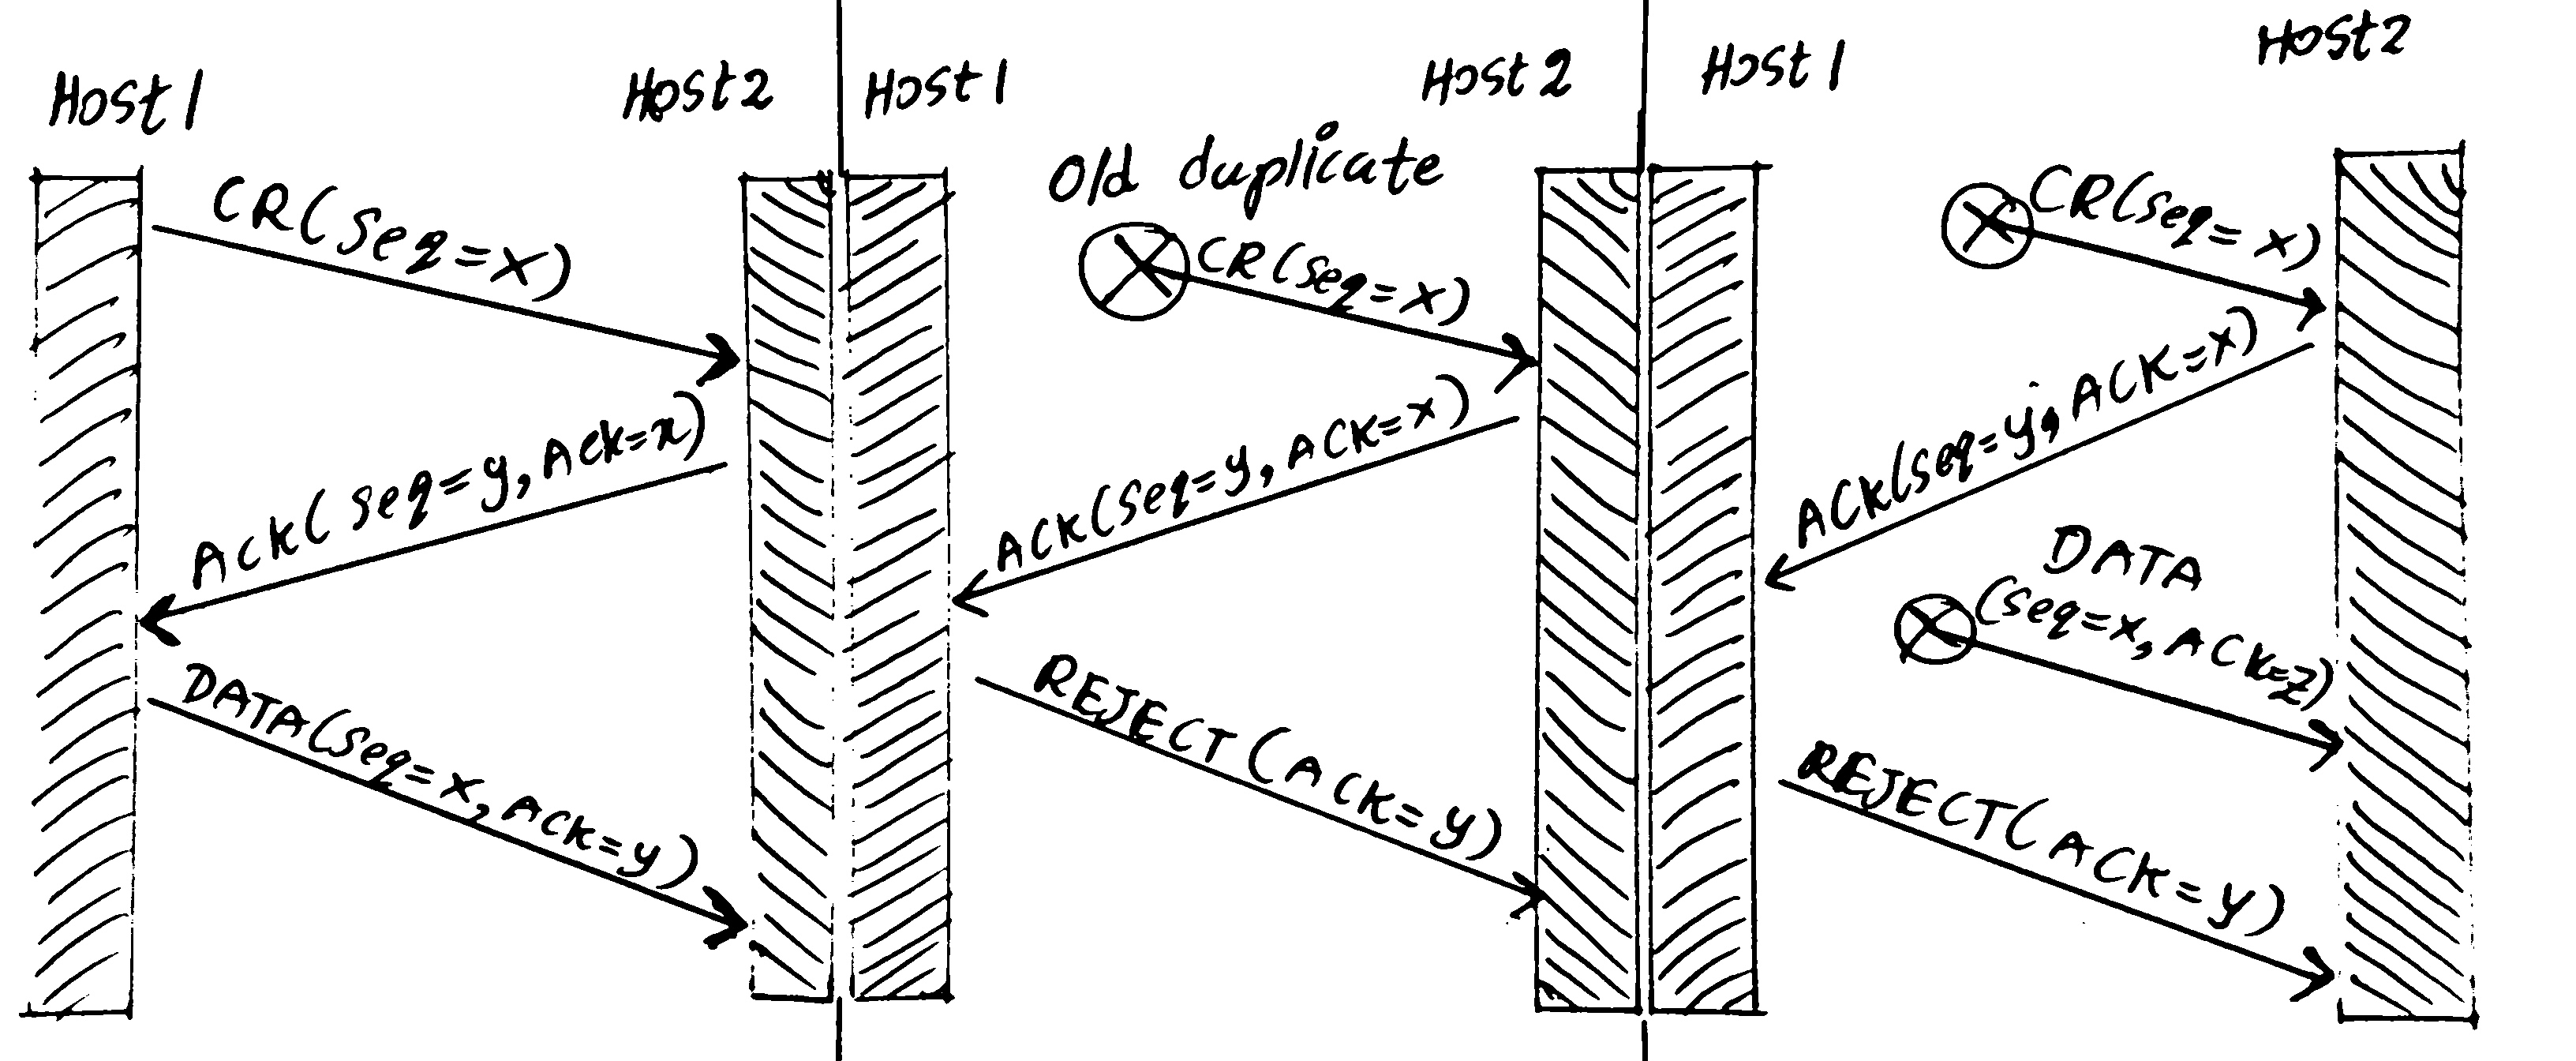 Host 1
Host 2
CR(seq=x)
Ack(seq=y, Ack=x)
DATA(seq=x, ACK=y)
Host 1
Host 2
Old duplicate
CR(seq=x)
ACK(seq=y, ACK=x)
REJECT(ACK=y)
Host 1
Host 2
CR(seq=x)
ACK(seq=y, ACK=x)
DATA
(seq=x, ACK=z)
REJECT(ACK=y)